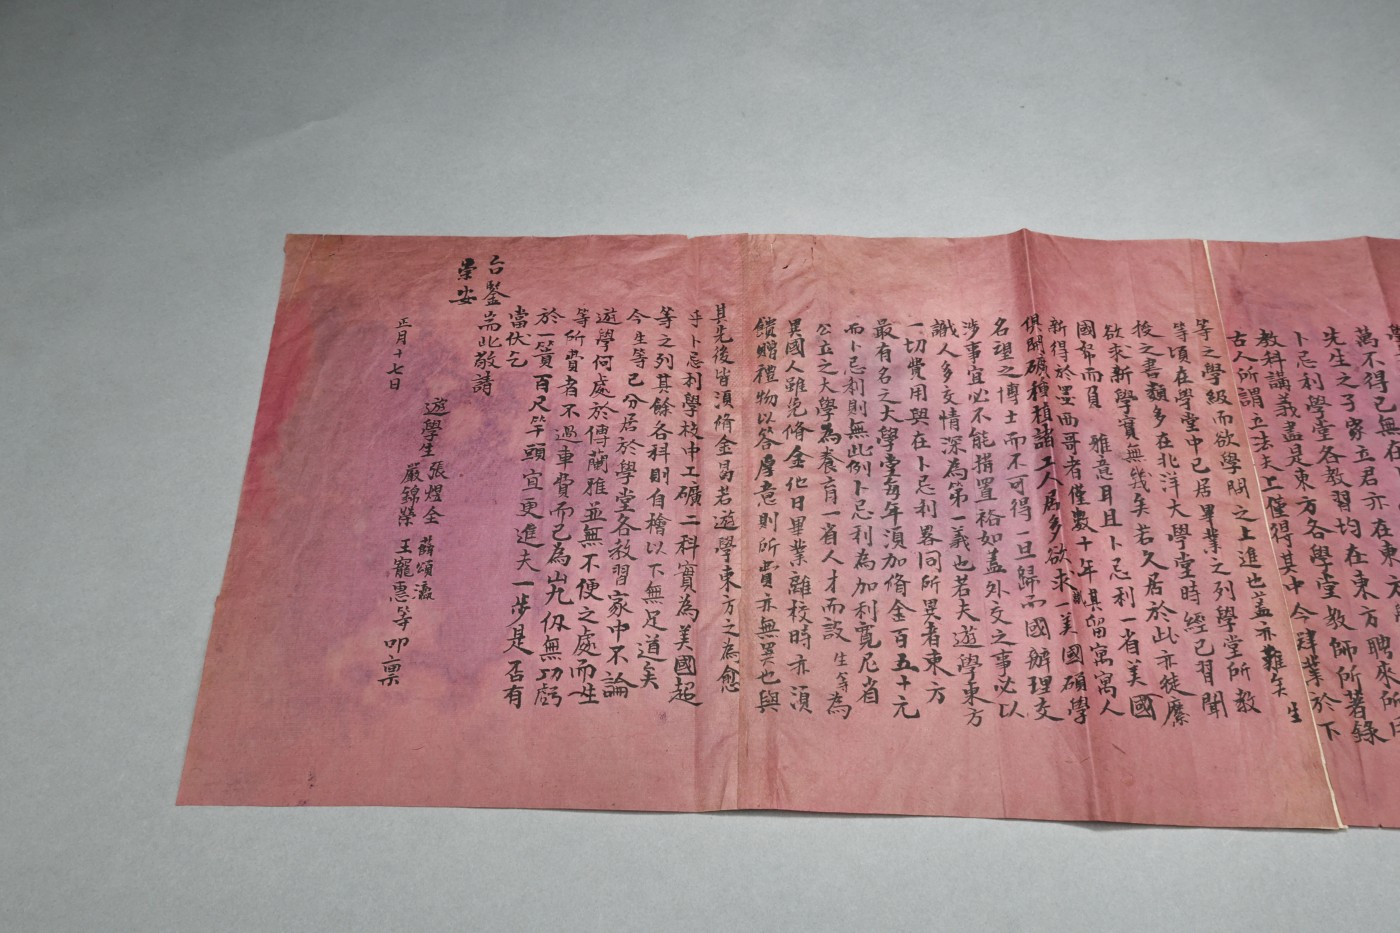 萬不得已無在東方聘來所
先生之子家立君亦在東
卜忌利學堂各教習均在東方
教科講義盡是東方各學堂教師所著錄
古人所謂立法夫上僅得其中今肄業於下
等之學級而欲學問之上進也蓋亦難矣生
等頃在學堂中已居畢業之列學堂所教
授之書類多在北洋大學堂時經已習聞
欲求新學實無幾矣若久居於此亦徒縻
國帑而負 雅意耳且卜忌利一省美國
新得於墨西哥者僅數十年其留寓寓人
俱開礦種植諸工人居多欲求一美國碩學
名望之博士而不可得一旦歸而國辦理交
涉事宜必不能措置裕如蓋外交之事必以
識人多交情深為第一義也若夫遊學東方
一切費用與在卜忌利畧同所異者東方
最有名之大學堂每年須加脩金百五十元
而卜忌利則無此例卜忌利為加利寬尼省
公立之大學為養育一省人才而設 生等為
異國人雖免脩金他日畢業離校時亦須
饋贈禮物以答厚意則所費亦無異也與
其先後皆須脩金曷若遊學東方之為愈
乎卜忌利學校中工礦二科實為美國超
等之列其餘各科則自檜以下無足道矣
今生等已分居於學堂各教習家中不論
遊學何處於傳蘭雅並無不便之處而生
等所費者不過車費而已為山九仞無功虧
於一簣百尺竿頭宜更進夫一步是否有
當伏乞
台鑒
耑此敬請
崇安
正月十七日
遊學生 張煜全 蘇頌瀛
嚴錦榮 王寵惠等 叩稟